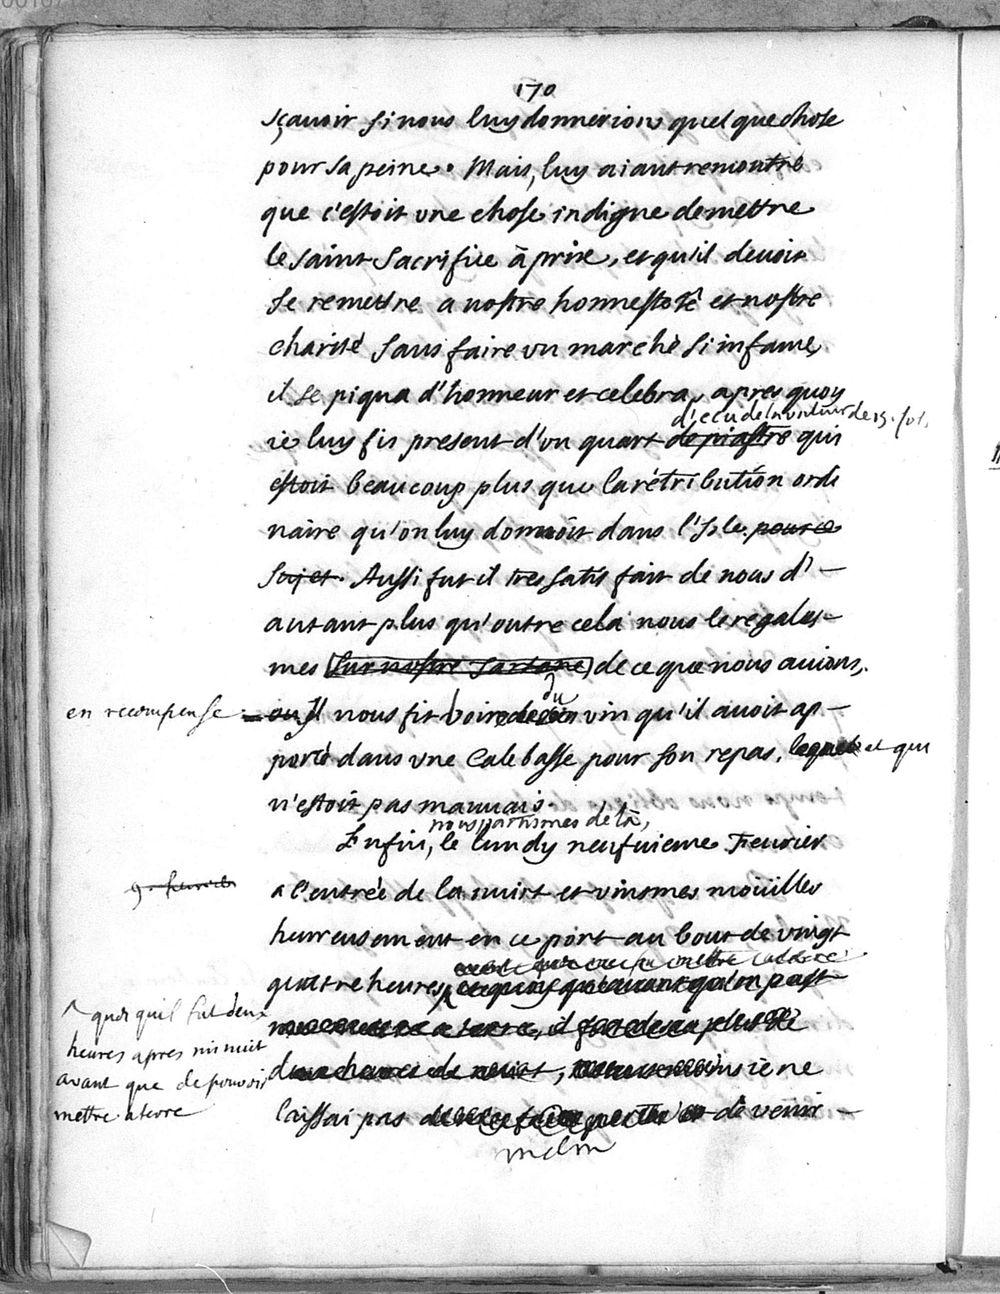 170
sçauoir si nous luy donnerions quelque chose
pour sa peine. Mais, luy aiant remontré
que c'estoit vne chose indigne de mettre
le saint Sacrifice à prix, et qu'il deuoit
se remettre a nostre honnesteté et nostre
charité sans faire vn marché si infame,
il se piqua d'honneur et celebra, apres quoy
d'écu de la valeur de 15. sol.
ie luy fis present d'vn quart de piastre qui
estoit beaucoup plus que la rétribution ordi
naire qu'on luy donnoit dans l'Isle. pour ce
sujet. Aussi fut il tres satisfait de nous d'-
autant plus qu'outre cela nous le regalas-
mes sur nostre sartane de ce que nous auions,
en recompense
ou Il nous fit boire du vin qu'il auoit ap-
porté dans vne Calebasse pour son repas, lequel et qui
n'estoit pas mauuais.
nous partismes de là,
Enfin, le lundy neufuieme Feurier
9. feurier
a l'entrée de la nuict et vinsmes moüiller
heureusement en ce port au bout de vingt
quattre heures,
quoi quil fut deux
heures apres minuit
avant que de pouvoir
mettre a terre
il
de nuict, ie ne
laissai pas de venir -